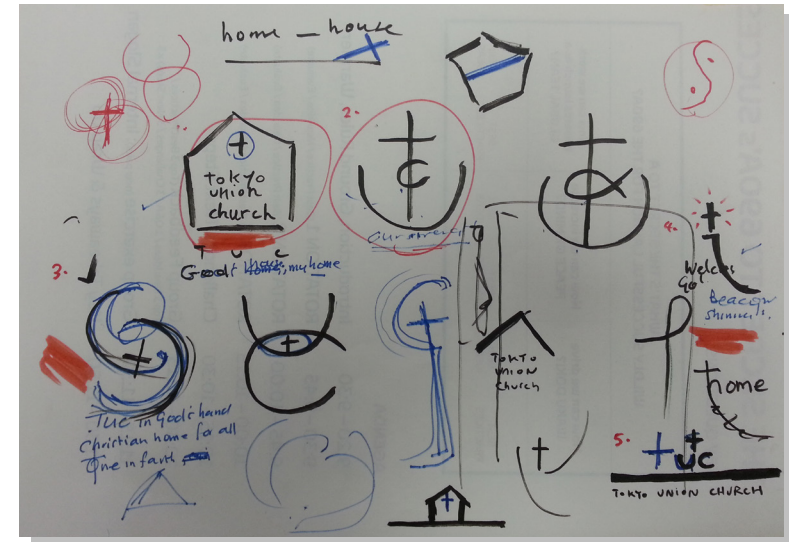 home – house
1.
2.
TOKYO
union
church
T U C
God's home, my home
3.
4.
Beacon
TUC In God's hand
Christian home for all
One in faith
TOKYO
UNION
Church
home
5.
tuc
TOKYO UNION CHURCH